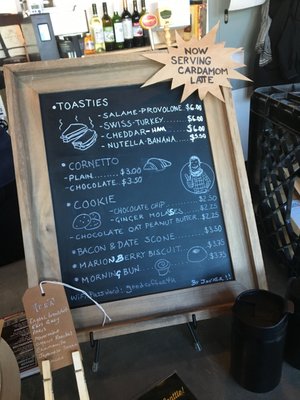 NOW
SERVING
CARDAMOM
LATTE
• TOASTIES
- SALAME-PROVOLONE $6.00
- SWISS-TURKEY $6.00
- CHEDDAR-HAM $6.00
- NUTELLA-BANANA
• CORNETTO
- PLAIN $3.00
- CHOCOLATE $3.50
• COOKIE
- CHOCOLATE CHIP $2.50
- GINGER MOLASSES $2.25
- CHOCOLATE OAT PEANUT BUTTER $2.25
• BACON & DATE SCONE $3.50
• MARION BERRY BISCUIT $3.75
• MORNING BUN $3.75
WiFi Password: goodcoffee4u